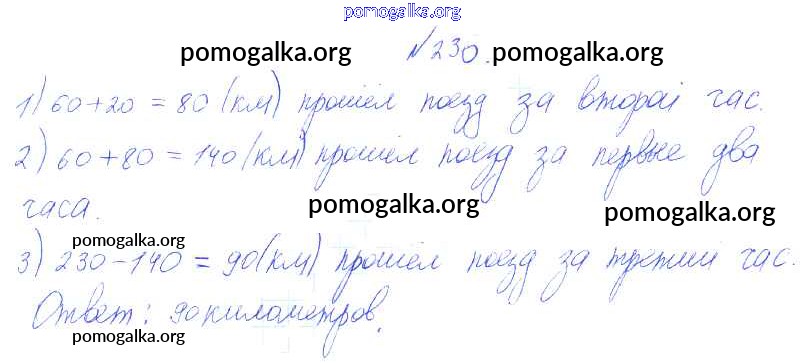 pomogalka.org
pomogalka.org №230. pomogalka.org
1) 60+20 = 80 (км) прошёл поезд за второй час.
2) 60+80 = 140 (км) прошёл поезд за первые два
часа. pomogalka.org pomogalka.org
pomogalka.org
3) 230-140 = 90 (км) прошёл поезд за третий час.
Ответ: 90 километров.
pomogalka.org pomogalka.org